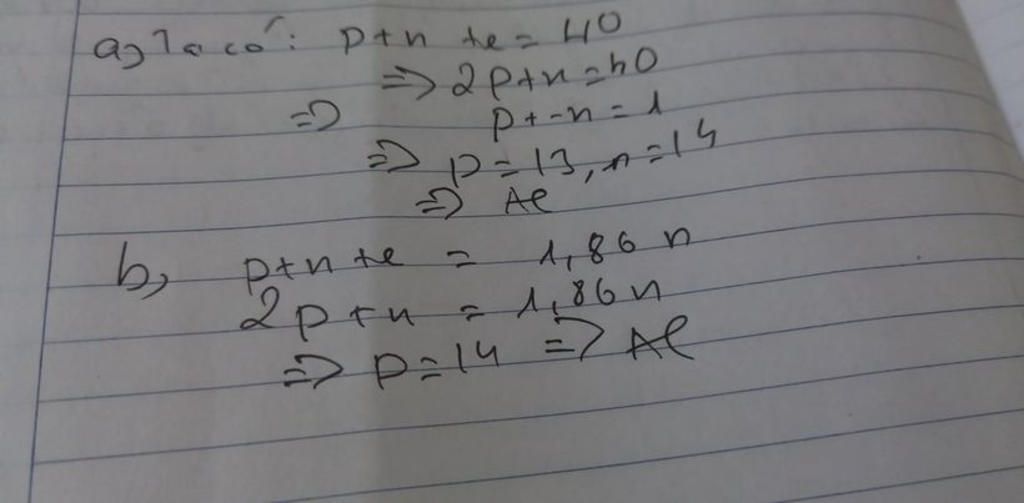 a, Ta có: p+n +e = 40
=> 2p+n=40
=> p+-n=1
=> p=13, n=14
=> Al
b, p+n+e = 1,86 n
2p+n = 1,86n
=> p=14 => Al